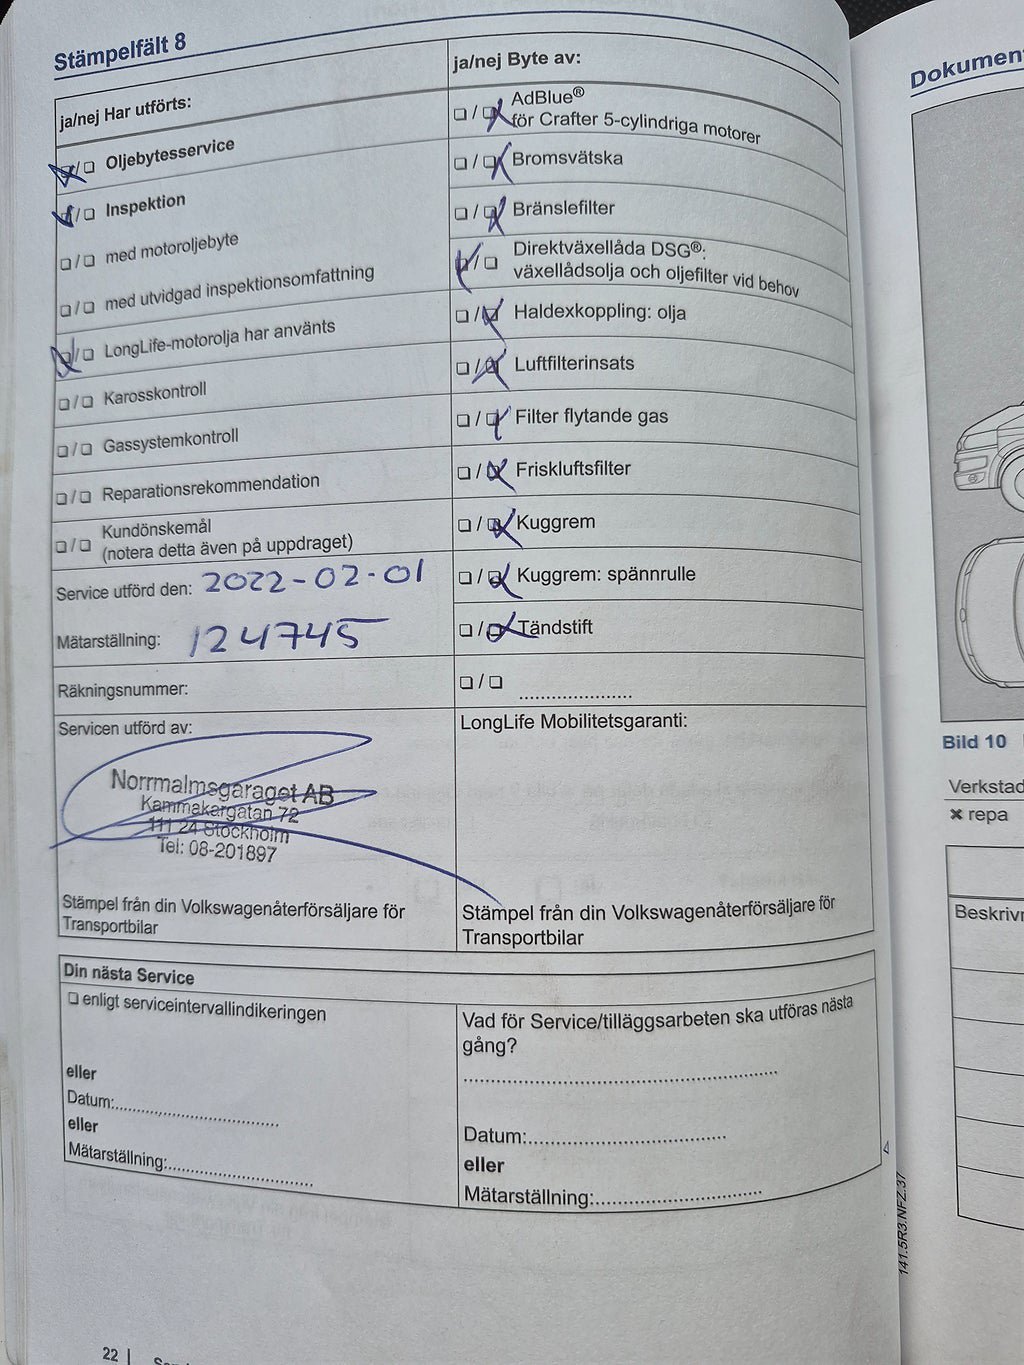 Stämpelfält 8
ja/nej Har utförts:
Oljebytesservice
Inspektion
med motoroljebyte
med utvidgad inspektionsomfattning
LongLife-motorolja har använts
Karosskontroll
Gassystemkontroll
Reparationsrekommendation
Kundönskemål
(notera detta även på uppdraget)
Service utförd den: 2022-02-01
Mätarställning: 124745
Räkningsnummer:
Servicen utförd av:
Norrmalmsgaraget AB
Kammakargatan 72
111 24 Stockholm
Tel: 08-201897
Stämpel från din Volkswagenåterförsäljare för
Transportbilar
ja/nej Byte av:
AdBlue®
för Crafter 5-cylindriga motorer
Bromsvätska
Bränslefilter
Direktväxellåda DSG®:
växellådsolja och oljefilter vid behov
Haldexkoppling: olja
Luftfilterinsats
Filter flytande gas
Friskluftsfilter
Kuggrem
Kuggrem: spännrulle
Tändstift
LongLife Mobilitetsgaranti:
Stämpel från din Volkswagenåterförsäljare för
Transportbilar
Din nästa Service
enligt serviceintervallindikeringen
eller
Datum:
eller
Mätarställning:
Vad för Service/tilläggsarbeten ska utföras nästa
gång?
Datum:
eller
Mätarställning:
141.5R3.NFZ.37
22
Dokument
Bild 10
Verkstad
repa
Beskrivn